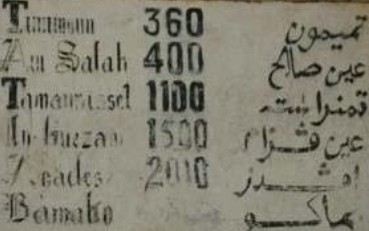 Timimoun 360 تميمون
Ain Salah 400 عين صالح
Tamanrasset 1100 تمنراست
In Guezzam 1500 عين قزام
2010
Bamako باماكو